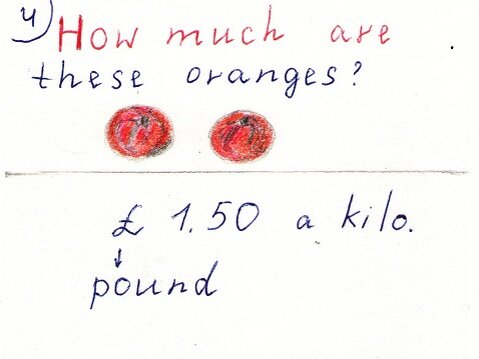 4) How much are
these oranges?
£ 1.50 a kilo.
↓
pound